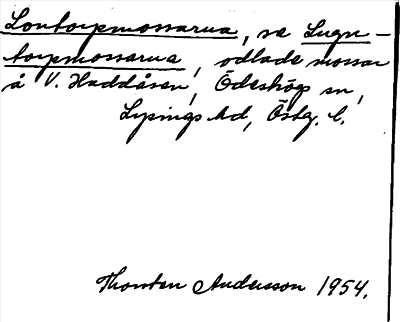 Lontorpmossarna, se Lugn-
torpmossarna, odlade mossar
å V. Haddåsen, Ödeshögs sn,
Lysings hd, Östg. l.
Thorsten Andersson 1954.